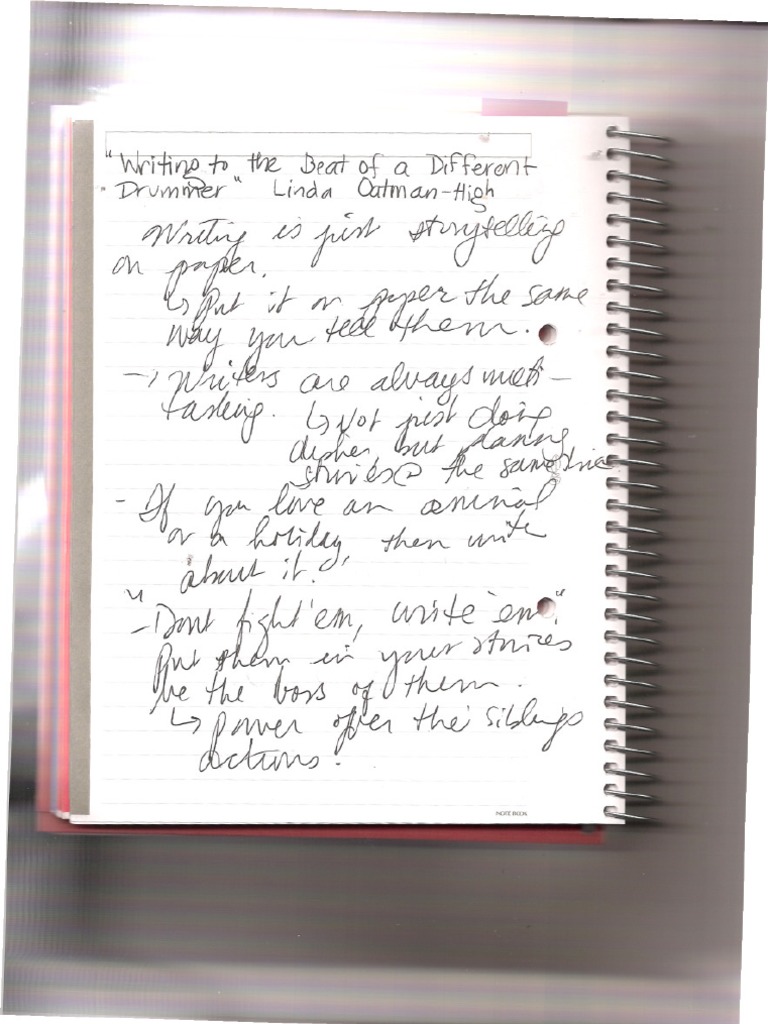 "Writing to the Beat of a Different
Drummer" Linda Oatman-High
Writing is just storytelling
on paper.
↳ Put it on paper the same
way you tell them.
→ Writers are always multi-
tasking. ↳ Not just doing
dishes, but planning
stories @ the same time
- If you love an animal
or a holiday, then write
about it.
"
- Dont fight 'em, write 'em."
Put them in your stories
be the boss of them.
↳ power over the siblings
actions.
NOTE BOOK